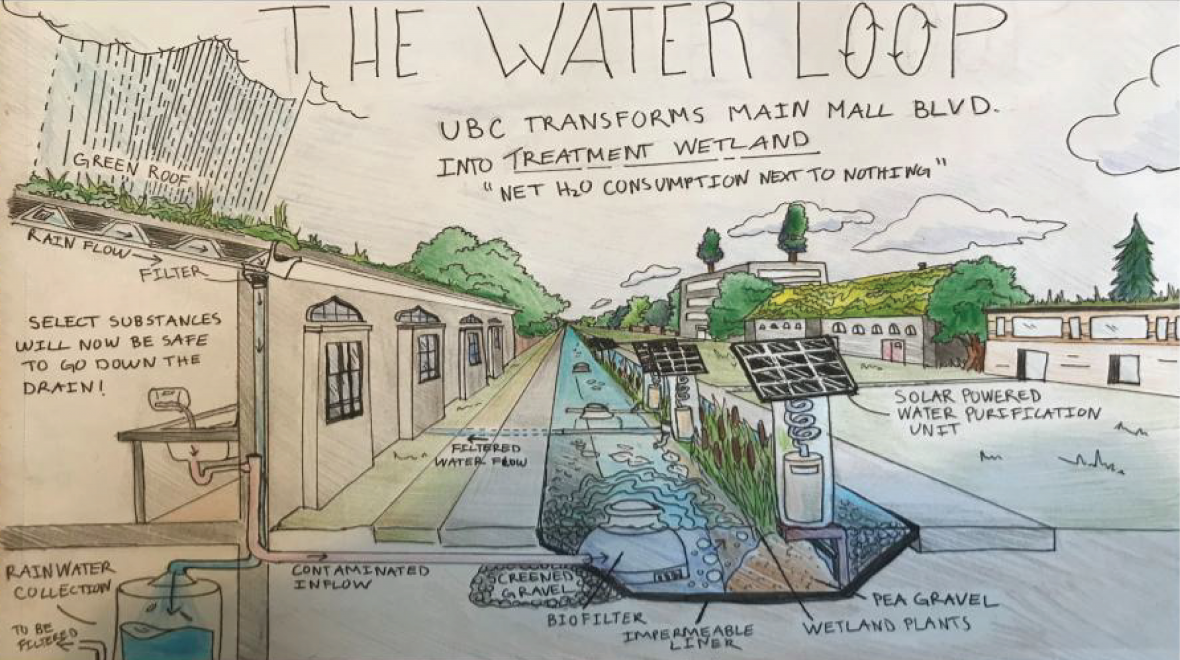 THE WATER LOOP
UBC TRANSFORMS MAIN MALL BLVD.
INTO TREATMENT WETLAND
"NET H₂O CONSUMPTION NEXT TO NOTHING"
GREEN ROOF
RAIN FLOW
FILTER
SELECT SUBSTANCES
WILL NOW BE SAFE
TO GO DOWN THE
DRAIN!
SOLAR POWERED
WATER PURIFICATION
UNIT
FILTERED
WATER FLOW
RAINWATER
COLLECTION
TO BE
FILTERED
CONTAMINATED
INFLOW
SCREENED
GRAVEL
BIOFILTER
IMPERMEABLE
LINER
WETLAND PLANTS
PEA GRAVEL